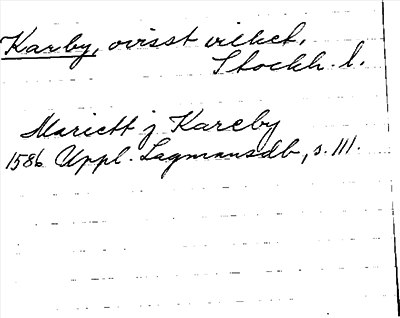 Karby, ovisst vilket.
Stockh. l.
Mariett j Kareby
1586 Uppl. Lagmansdb, s. 111.